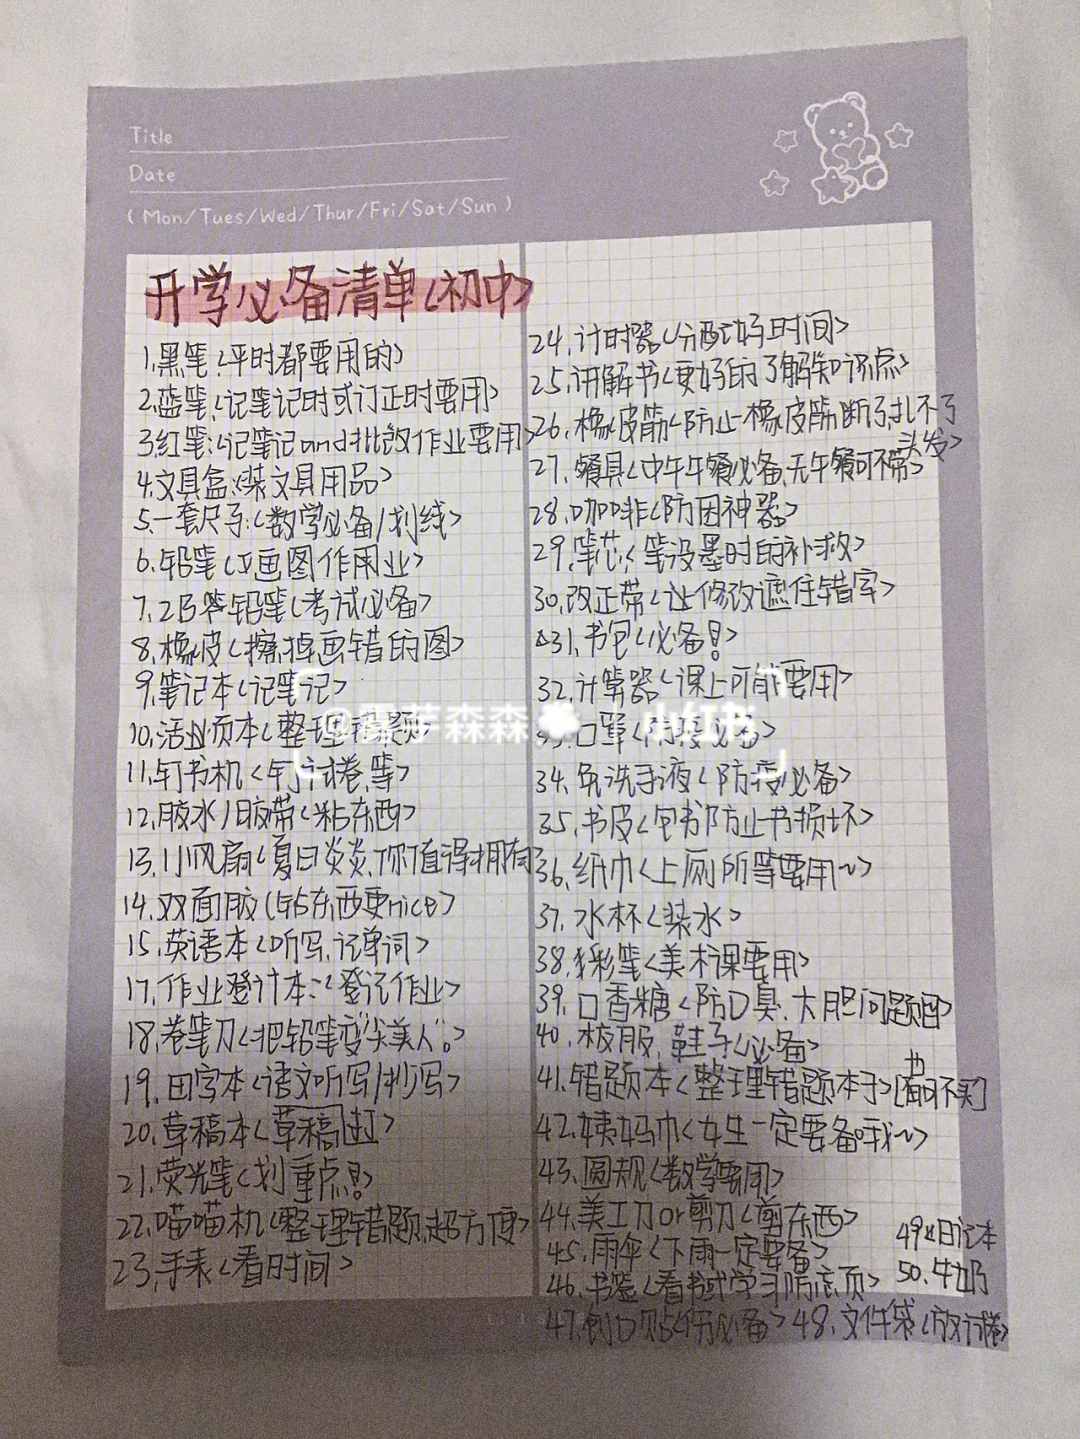 Title
Date
(Mon/Tues/Wed/Thur/Fri/Sat/Sun)
开学必备清单<初中>
1.黑笔<平时都要用的>
2.蓝笔<记笔记时或订正时要用>
3.红笔:<记笔记and批改作业要用>
4.文具盒<装文具用品>
5.一套尺子:<数学必备/划线>
6.铅笔<画图作用业>
7.2B笔铅笔<考试必备>
8.橡皮<擦掉画错的图>
9.笔记本<记笔记>
10.活页本<整理错题>
11.钉书机<钉试卷,等>
12.胶水/胶带<粘东西>
13.小风扇<夏日炎炎,你值得拥有>
14.双面胶(粘东西更nice>
15.英语本<听写,记单词>
17.作业登计本:<登记作业>
18.卷笔刀<把铅笔变"尖美人"。>
19.田字本<语文听写/抄写>
20.草稿本<草稿>
21.荧光笔<划重点!>
22.喵喵机<整理错题,超方便>
23.手表<看时间>
24.计时器<分配好时间>
25.讲解书<更好的了解知识点>
26.橡皮筋<防止橡皮筋断了,扎不了
头发>
27.餐具<中午午餐必备,无午餐可不带>
28.咖啡<防困神器>
29.笔芯<笔没墨时的补救>
30.改正带<让修改遮住错字>
31.书包<必备!>
32.计算器<课上可能要用>
33.口罩<防疫必备>
34.免洗手液<防疫必备>
35.书皮<包书防止书损坏>
36.纸巾<上厕所等要用~>
37.水杯<装水>
38.彩笔<美术课要用>
39.口香糖<防口臭,大胆问题目>
40.校服,鞋子<必备>
41.错题本<整理错题本子>
42.姨妈巾<女生一定要备哦~>
43.圆规<数学要用>
44.美工刀or剪刀<剪东西>
45.雨伞<下雨一定要备>
46.书签<看书或学习防忘页>
47.创口贴<伤必备> 48.文件袋<放试卷>
49.日记本
50.牛奶
@露芽森森 小红书